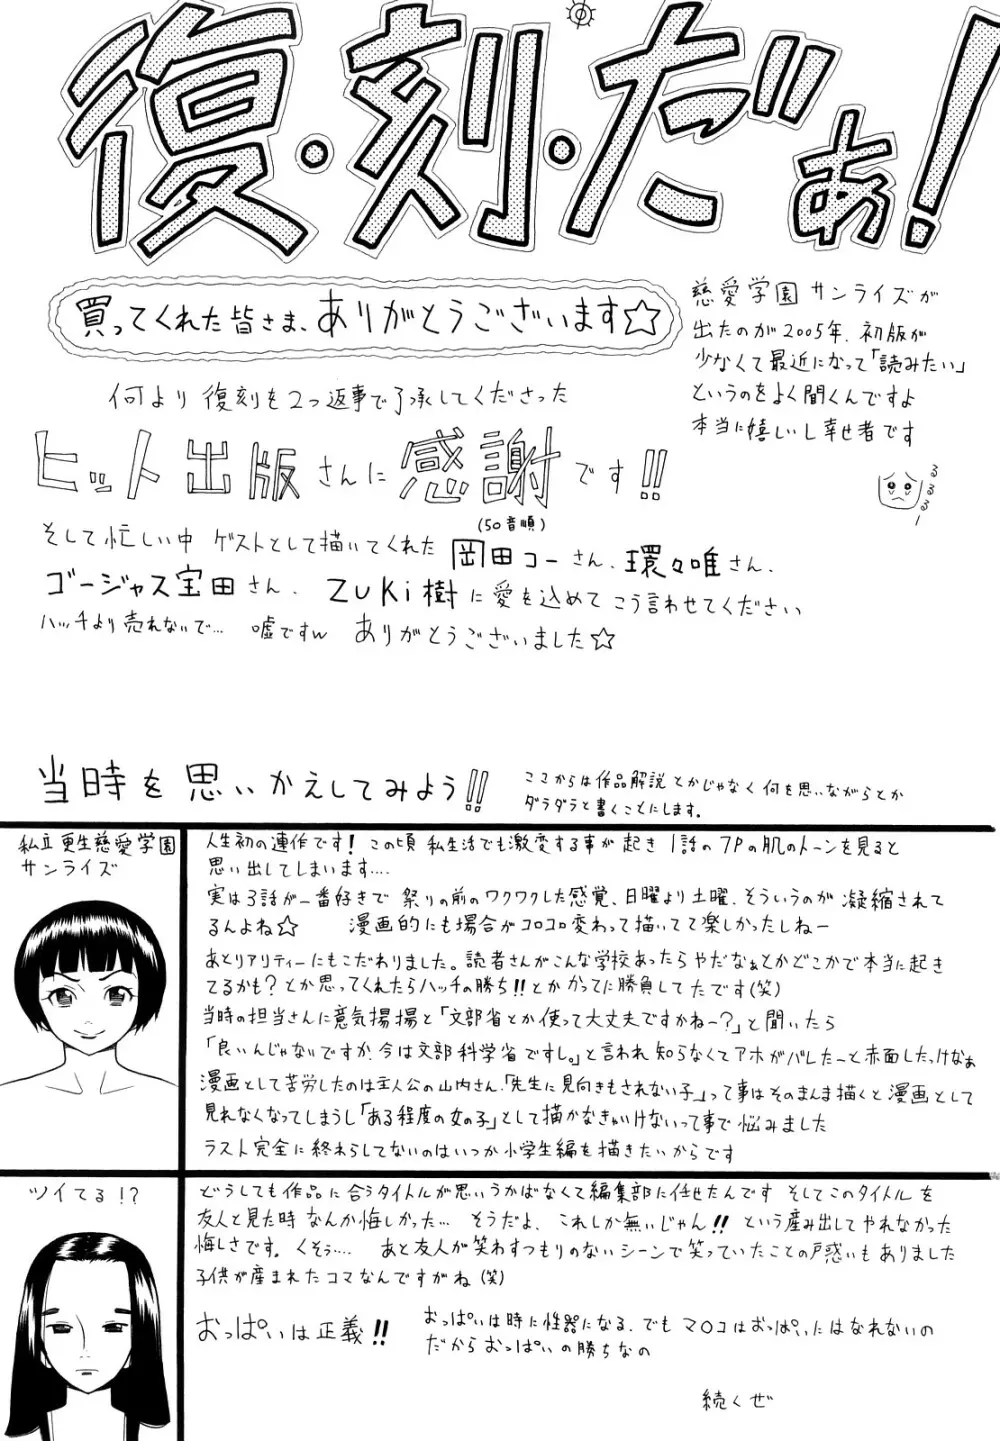 復・刻・だぁ!
買ってくれた皆さま、ありがとうございます☆
慈愛学園サンライズが
出たのが2005年、初版が
少なくて最近になって「読みたい」
というのをよく聞くんですよ
本当に嬉しいし幸せ者です
るるるー
何より復刻を2つ返事で了承してくださった
ヒット出版さんに感謝です!!
(50音順)
そして忙しい中 ゲストとして描いてくれた 岡田コーさん、環々唯さん、
ゴージャス宝田さん、 ZUKi樹に愛を込めてこう言わせてください
ハッチより売れないで… 嘘ですw ありがとうございました☆
当時を思いかえしてみよう!!
ここからは作品解説とかじゃなく何を思いながらとか
ダラダラと書くことにします。
私立更生慈愛学園
サンライズ
人生初の連作です! この頃私生活でも激変する事が起き 1話の7Pの肌のトーンを見ると
思い出してしまいます....
実は3話が一番好きで 祭りの前のワクワクした感覚、日曜より土曜、そういうのが凝縮されて
るんよね☆ 漫画的にも場合がコロコロ変わって描いてて楽しかったしねー
あとリアリティーにもこだわりました。読者さんがこんな学校あったらやだなぁとかどこかで本当に起き
てるかも?とか思ってくれたらハッチの勝ち!!とかかってに勝負してたです(笑)
当時の担当さんに意気揚揚と「文部省とか使って大丈夫ですかねー?」と聞いたら
「良いんじゃないですか、今は文部科学省ですし。」と言われ知らなくてアホがバレたーと赤面したっけなぁ
漫画として苦労したのは主人公の山内さん、「先生に見向きもされない子」って事はそのまんま描くと漫画として
見れなくなってしまうし「ある程度の女の子」として描かなきゃいけないって事で悩みました
ラスト完全に終わらしてないのはいつか小学生編を描きたいからです
ツイてる!?
どうしても作品に合うタイトルが思いうかばなくて編集部に任せたんです そしてこのタイトルを
友人と見た時なんか悔しかった… そうだよ、これしか無いじゃん!!という産み出してやれなかった
悔しさです。くそぅ.... あと友人が笑わすつもりのないシーンで笑っていたことの戸惑いもありました
子供が産まれたコマなんですがね(笑)
おっぱいは正義!!
おっぱいは時に性器になる、でもマ○コはおっぱいにはなれないの
だからおっぱいの勝ちなの
続くぜ